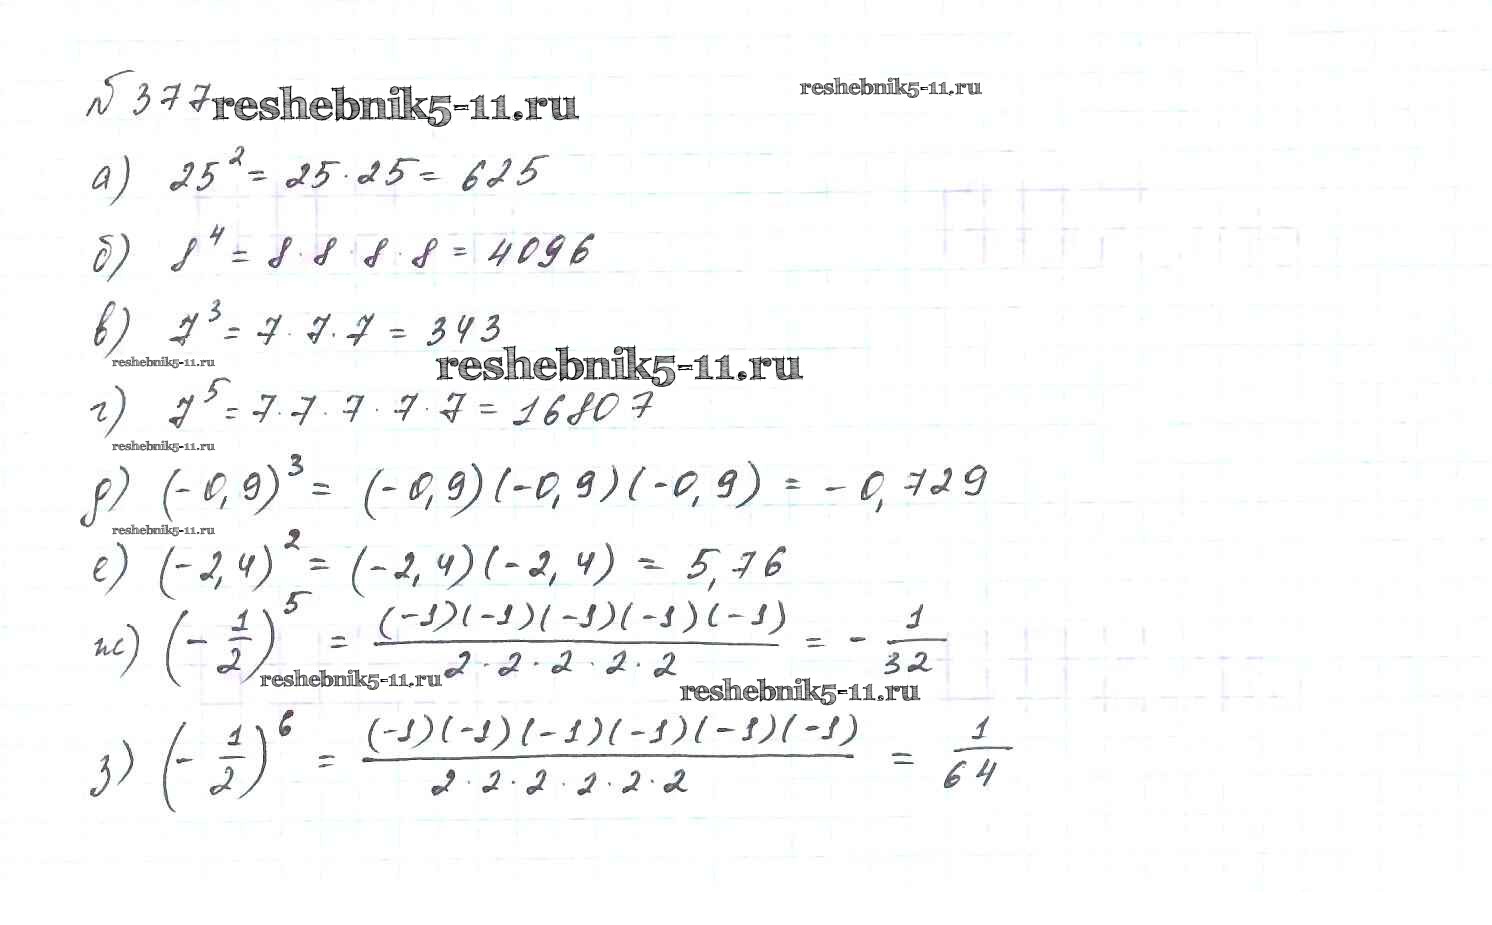 № 377 reshebnik5-11.ru
reshebnik5-11.ru
а) 25² = 25 · 25 = 625
б) 8⁴ = 8 · 8 · 8 · 8 = 4096
в) 7³ = 7 · 7 · 7 = 343
reshebnik5-11.ru
reshebnik5-11.ru
г) 7⁵ = 7 · 7 · 7 · 7 · 7 = 16807
reshebnik5-11.ru
д) (-0,9)³ = (-0,9)(-0,9)(-0,9) = -0,729
reshebnik5-11.ru
е) (-2,4)² = (-2,4)(-2,4) = 5,76
ж) (-1/2)⁵ = (-1)(-1)(-1)(-1)(-1)/2·2·2·2·2 = -1/32
reshebnik5-11.ru
reshebnik5-11.ru
з) (-1/2)⁶ = (-1)(-1)(-1)(-1)(-1)(-1)/2·2·2·2·2·2 = 1/64